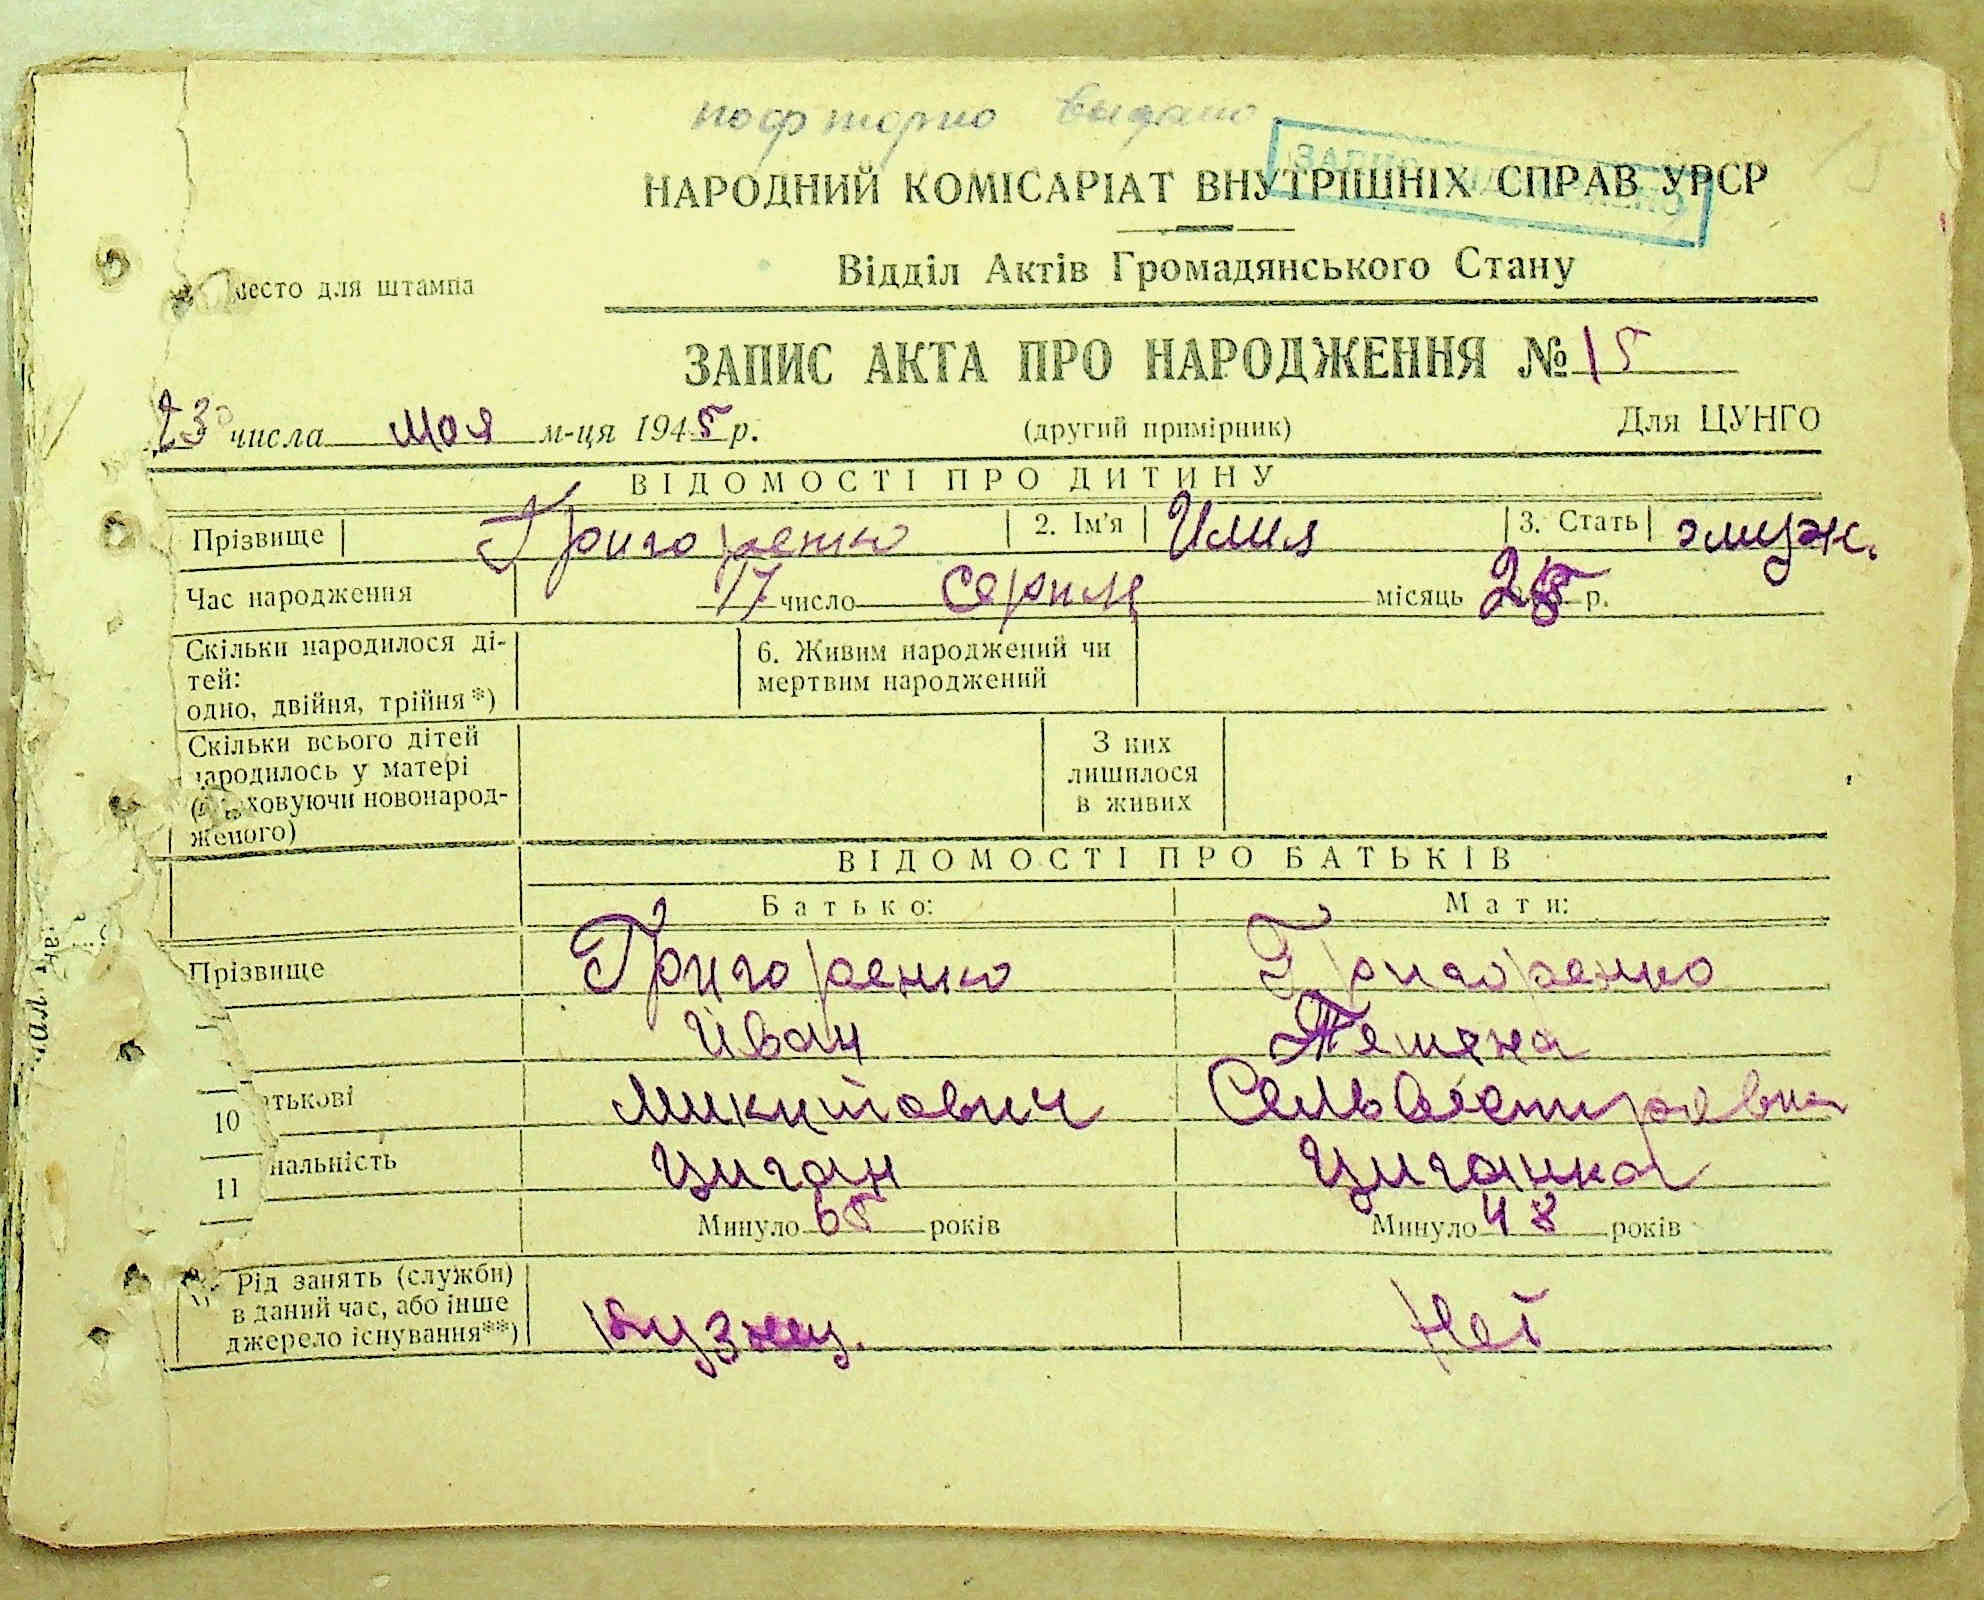 повторно выдано
НАРОДНИЙ КОМІСАРІАТ ВНУТРІШНІХ СПРАВ УРСР
Відділ Актів Громадянського Стану
место для штампа
ЗАПИС АКТА ПРО НАРОДЖЕННЯ № 15
23 числа мая м-ця 1945 р. (другий примірник) Для ЦУНГО
ВІДОМОСТІ ПРО ДИТИНУ
Прізвище Григоренко 2. Ім'я Илия 3. Стать муж.
Час народження 17 число місяць р.
Скільки народилося ді-
тей:
одно, двійня, трійня*)
6. Живим народжений чи
мертвим народжений
Скільки всього дітей
народилось у матері
ховуючи новонарод-
женого)
З них
лишилося
в живих
ВІДОМОСТІ ПРО БАТЬКІВ
Батько: Мати:
Прізвище Григоренко Григоренко
Иван
10 атькові Микитович Сельвестровна
11 нальність Циган Циганка
Минуло 65 років Минуло 48 років
Рід занять (служби)
в даний час, або інше
джерело існування**)
Кузнец. Нет